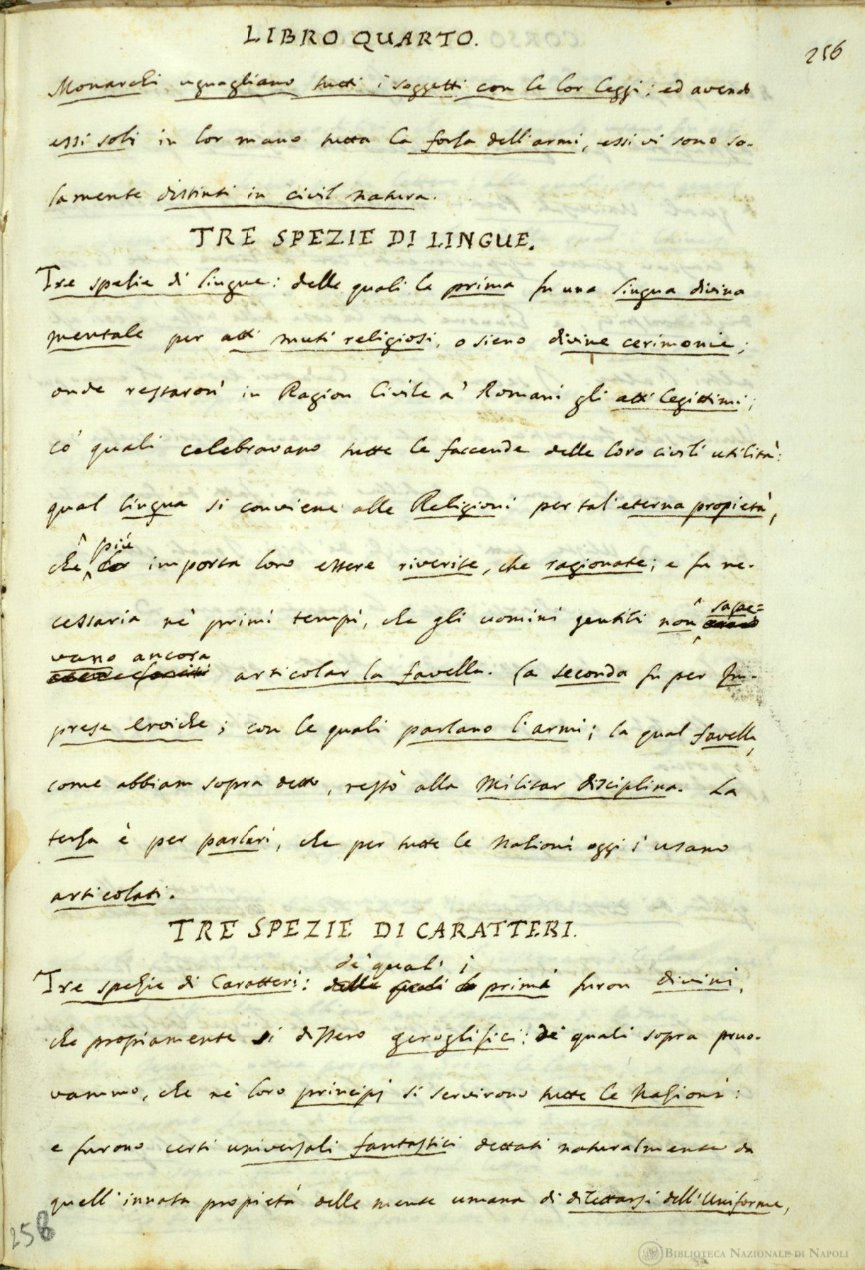 LIBRO QUARTO.
256
Monarchi uguagliano tutti i soggetti con le lor leggi; ed avendo
essi soli in lor mano tutta la forza dell'armi, essi vi sono so-
lamente distinti in civil natura.
TRE SPEZIE DI LINGUE.
Tre spezie di lingue: delle quali la prima fu una lingua divina
mentale per atti muti religiosi, o sieno divine cerimonie;
onde restaron' in Ragion Civile a' Romani gli atti legittimi;
co' quali celebravano tutte le faccende delle loro civili utilità:
qual lingua si conviene alle Religioni per tal' eterna propietà,
che più importa loro essere riverite, che ragionate; e fu ne-
cessaria ne' primi tempi, che gli uomini gentili non sape=
vano ancora articolar la favella. La seconda fu per Im-
prese eroiche; con le quali parlano l'armi; la qual favella,
come abbiam sopra detto, restò alla Militar disciplina. La
terza è per parlari, che per tutte le Nazioni oggi s'usano
articolati.
TRE SPEZIE DI CARATTERI.
Tre spezie di Caratteri: de' quali i primi furon divini,
che propiamente si dissero geroglifici: de' quali sopra pruo-
vammo, che ne' loro principj si servirono tutte le Nazioni:
e furono certi universali fantastici dettati naturalmente da
quell'innata propietà della mente umana di dilettarsi dell'Uniforme,
258
BIBLIOTECA NAZIONALE DI NAPOLI